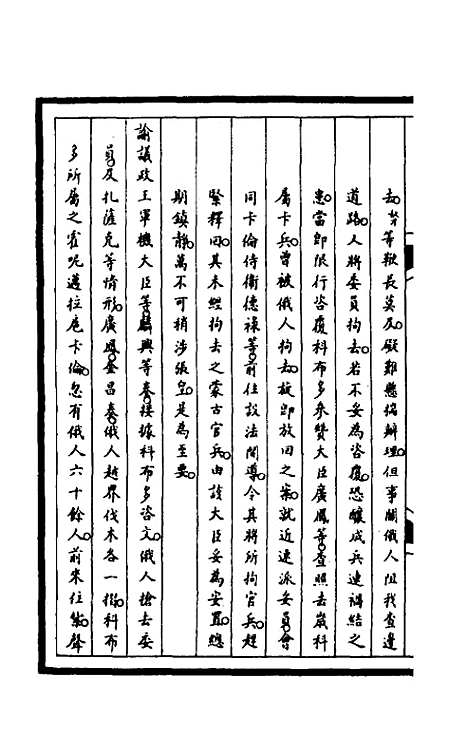 去。等鞭長莫及。礙難懸揣辦理。但事關俄人阻我查邊
道路。人將委員拘去。若不妥為咨覆。恐釀成兵連禍結之
患。當即限行咨覆科布多參贊大臣廣鳳等。查照去歲科
屬卡兵。曾被俄人拘去。旋即放回之案。就近速派妥員。會
同卡倫侍衛德祿等。前往設法開導。令其將所拘官兵。趕
緊釋回。其未經拘去之蒙古官兵。由該大臣妥為安置。總
期鎮靜。萬不可稍涉張皇。是為至要。
諭議政王軍機大臣等。麟興等奏。接據科布多咨文。俄人搶去委
員及扎薩克等情形。廣鳳。奎昌奏。俄人越界伐木各一摺。科布
多所屬之霍呢邁拉扈卡倫。忽有俄人六十餘人。前來住紮。聲